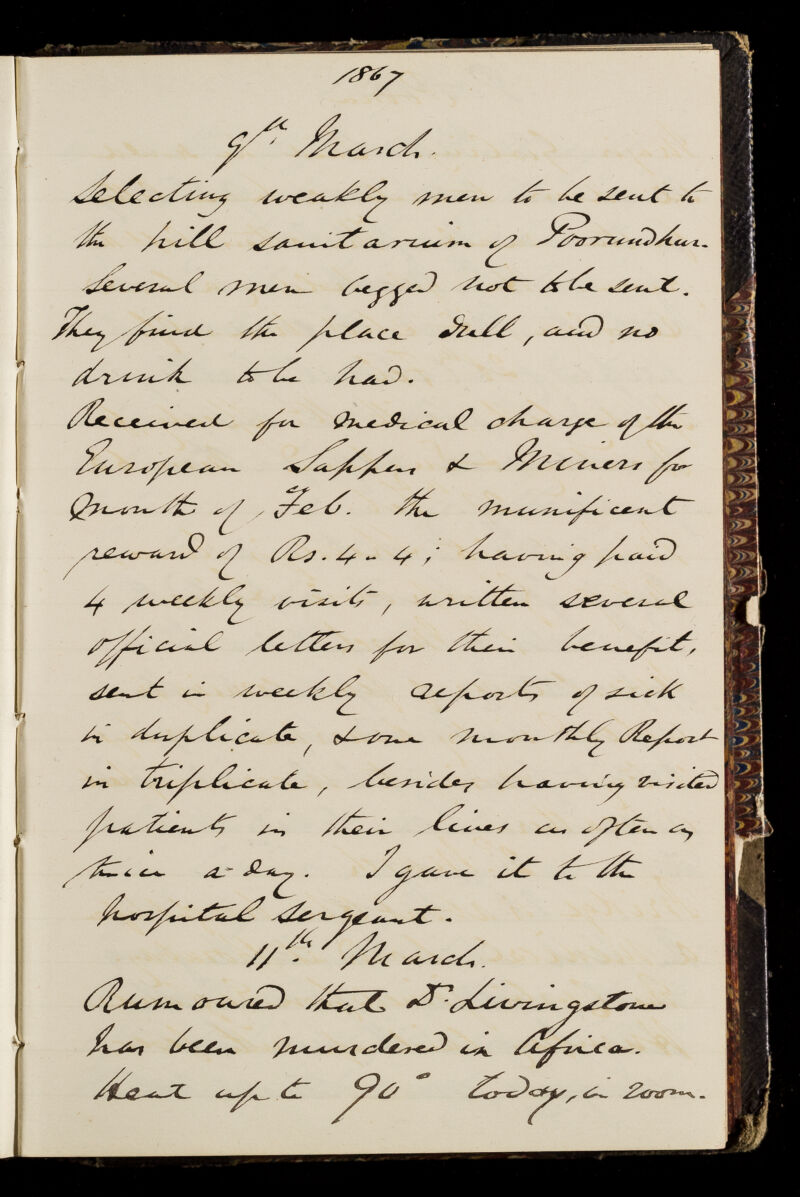 1867
9th March.
Selecting weakly men to be sent to
the hill sanitarium of Poorundhur.
Several men begged not to be sent.
They find the place dull, and no
drink to be had.
Received for medical charge of the
European Sappers & Miners for
month of Feb. the munificent
reward of Rs. 4-4; having paid
4 weekly visits, written several
official letters for their benefit,
sent in weekly reports of sick
in duplicate, & one monthly Report
in triplicate, besides having visited
patients in their lines as often as
twice a day. I gave it to the
hospital sergeant.
11th. March.
Rumoured that Dr. Livingstone
has been murdered in Africa.
Heat up to 90° today, in room.